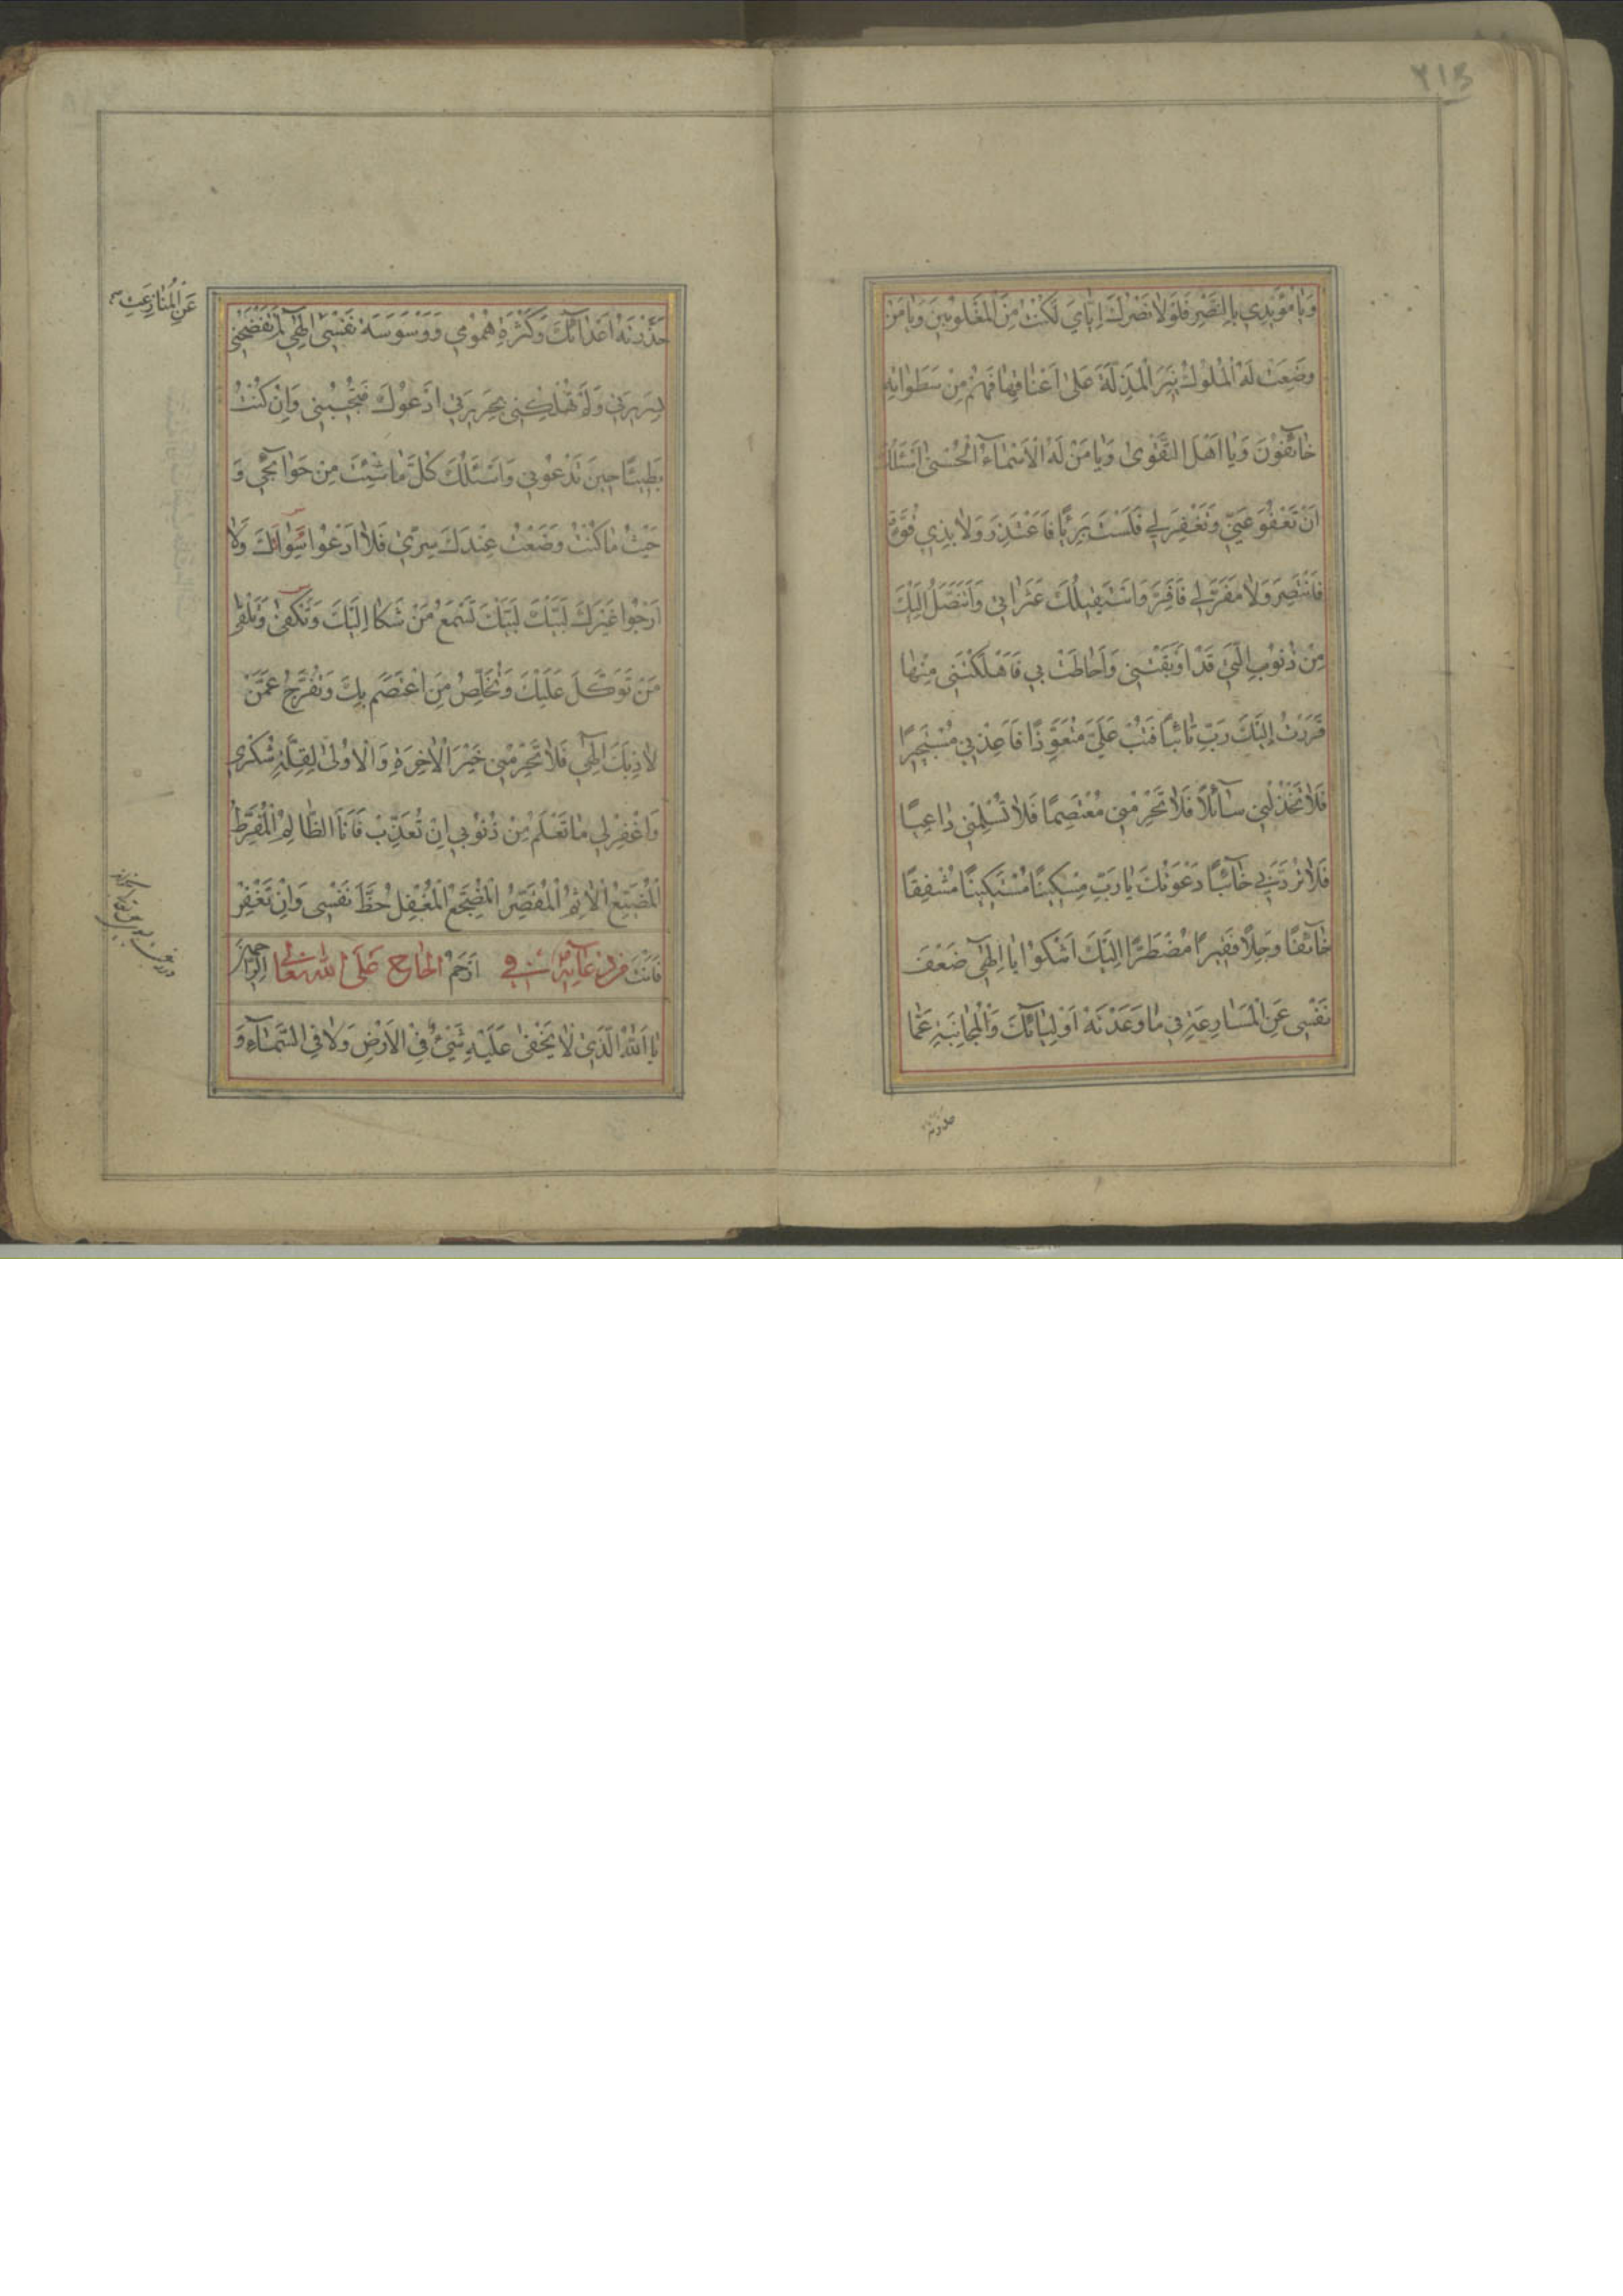 ٢١٥
وَيَا مُؤَيِّدِي بِالنَّصْرِ فَلَوْلَا نَصْرُكَ اِيَّايَ لَكُنْتُ مِنَ الْمَغْلُوبِينَ وَيَا مَنْ
وَضَعَتْ لَهُ الْمُلُوكُ نِيرَ الْمَذَلَّةِ عَلَى اَعْنَاقِهَا فَهُمْ مِنْ سَطَوَاتِهِ
خَائِفُونَ وَيَا اَهْلَ التَّقْوَى وَيَا مَنْ لَهُ الْاَسْمَاءُ الْحُسْنَى اَسْئَلُكَ
اَنْ تَعْفُوَ عَنِّي وَتَغْفِرَ لِي فَلَسْتُ بَرِيئًا فَاَعْتَذِرَ وَلَا بِذِي قُوَّةٍ
فَاَنْتَصِرَ وَلَا مَفَرَّ لِي فَاَفِرَّ وَاَسْتَقِيلُكَ عَثَرَاتِي وَاَتَنَصَّلُ اِلَيْكَ
مِنْ ذُنُوبِي الَّتِي قَدْ اَوْبَقَتْنِي وَاَحَاطَتْ بِي فَاَهْلَكَتْنِي مِنْهَا
فَرَرْتُ اِلَيْكَ رَبِّ تَائِبًا فَتُبْ عَلَيَّ مُتَعَوِّذًا فَاَعِذْنِي مُسْتَجِيرًا
فَلَا تَخْذُلْنِي سَائِلًا فَلَا تَحْرِمْنِي مُعْتَصِمًا فَلَا تُسْلِمْنِي دَاعِيًا
فَلَا تَرُدَّنِي خَائِبًا دَعَوْتُكَ يَا رَبِّ مِسْكِينًا مُسْتَكِينًا مُشْفِقًا
خَائِفًا وَجِلًا فَقِيرًا مُضْطَرًّا اِلَيْكَ اَشْكُوا يَا اِلَهِي ضَعْفَ
نَفْسِي عَنِ الْمُسَارَعَةِ فِي مَا وَعَدْتَهُ اَوْلِيَائَكَ وَالْمُجَانَبَةِ عَمَّا
حذرته
عَنِ الْمُنَازَعَةِ
حَذَّرْتَهُ اَعْدَائَكَ وَكَثْرَةَ هُمُومِي وَوَسْوَسَةَ نَفْسِي اِلَهِي لَمْ تَفْضَحْنِي
بِسَرِيرَتِي وَلَمْ تُهْلِكْنِي بِجَرِيرَتِي اَدْعُوكَ فَتُجِيبُنِي وَاِنْ كُنْتُ
بَطِيئًا حِينَ تَدْعُونِي وَاَسْئَلُكَ كُلَّ مَا شِئْتُ مِنْ حَوَائِجِي وَ
حَيْثُ مَا كُنْتُ وَضَعْتُ عِنْدَكَ سِرِّي فَلَا اَدْعُوا سِوَاكَ وَلَا
اَرْجُوا غَيْرَكَ لَبَّيْكَ لَبَّيْكَ تَسْمَعُ مَنْ شَكَا اِلَيْكَ وَتَكْفِي وَتَلْقَى
مَنْ تَوَكَّلَ عَلَيْكَ وَتُخَلِّصُ مَنِ اعْتَصَمَ بِكَ وَتُفَرِّجُ عَمَّنْ
لَاذَ بِكَ اِلَهِي فَلَا تَحْرِمْنِي خَيْرَ الْاٰخِرَةِ وَالْاُولَى لِقِلَّةِ شُكْرِي
وَاغْفِرْ لِي مَا تَعْلَمُ مِنْ ذُنُوبِي اِنْ تُعَذِّبْ فَاَنَا الظَّالِمُ الْمُفَرِّطُ
الْمُضَيِّعُ الْاٰثِمُ الْمُقَصِّرُ الْمُضَجِّعُ الْمُغْفِلُ حَظَّ نَفْسِي وَاِنْ تَغْفِرْ
فَاَنْتَ اَرْحَمُ الرَّاحِمِينَ من دعائه في الالحاح على الله تعالى
يَا اَللهُ الَّذِي لَا يَخْفَى عَلَيْهِ شَيْءٌ فِي الْاَرْضِ وَلَا فِي السَّمَاءِ وَ